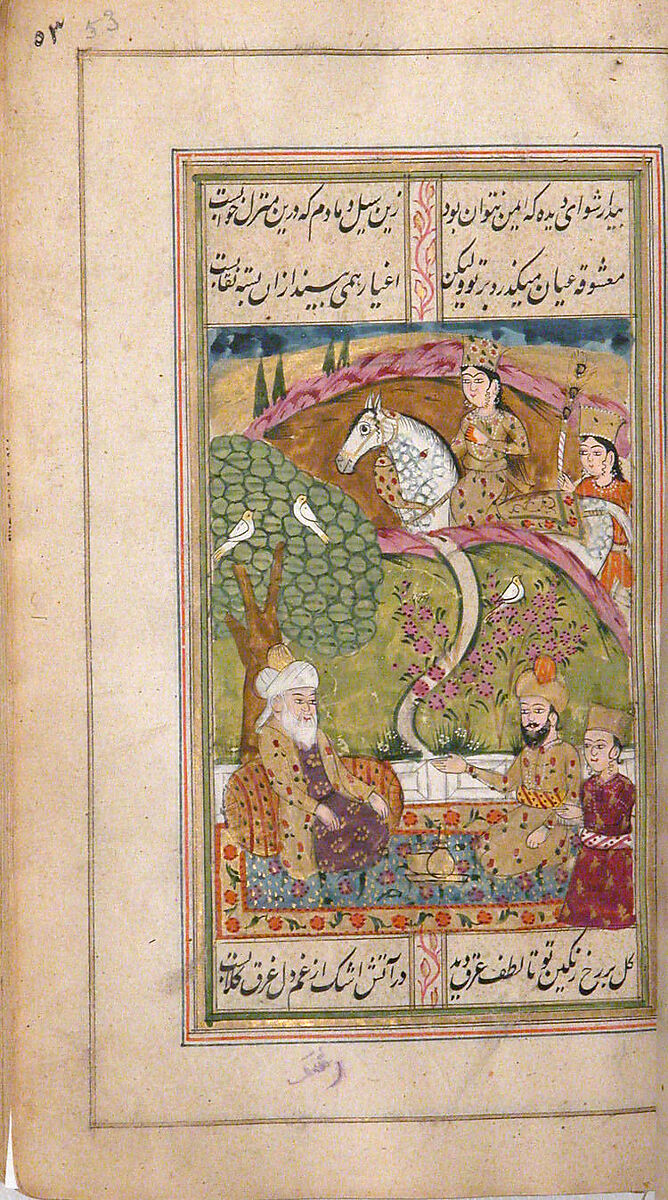 ۵۳ 53
بیدار شو ای دیده که ایمن نتوان بود زین سیل دمادم که درین منزل خوابست
معشوقه عیان میگذرد بر تو ولیکن اغیار همی بیند از ان بسته نقابست
گل بر رخ رنگین تو تا لطف عرق دید در آتش اشک از غم دل غرق گلابست